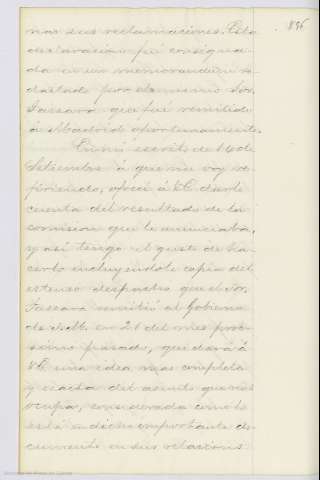 836
nar sus reclamaciones. Esta
declaración fué consigna-
da en un memorandum re-
dactado por el mismo Sor.
Tassara que fué remitido
á Madrid oportunamente.
En mi escrito de 14 de
Setiembre á que me voy re-
firiendo, ofrecí á V.E. darle
cuenta del resultado de la
comision que le anunciaba,
y así tengo el gusto de ha-
cerlo incluyendole copia del
extenso despacho que el Sor.
Tassara remitió al Gobierno
de S.M. en 26 del mes prox-
ximo pasado, que dará á
V.E. una idea mas completa
y exacta del asunto que nos
ocupa, considerada como lo
está en dicho importante do-
cumento en sus relaciones